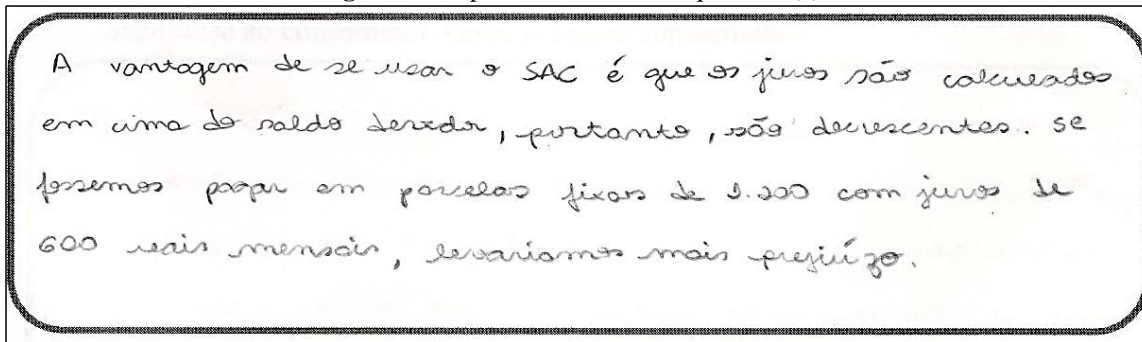 A vantagem de se usar o SAC é que os juros são calculados
em cima do saldo devedor, portanto, são decrescentes. se
fossemos pagar em parcelas fixas de com juros de
600 reais mensais, levariamos mais prejuízo.